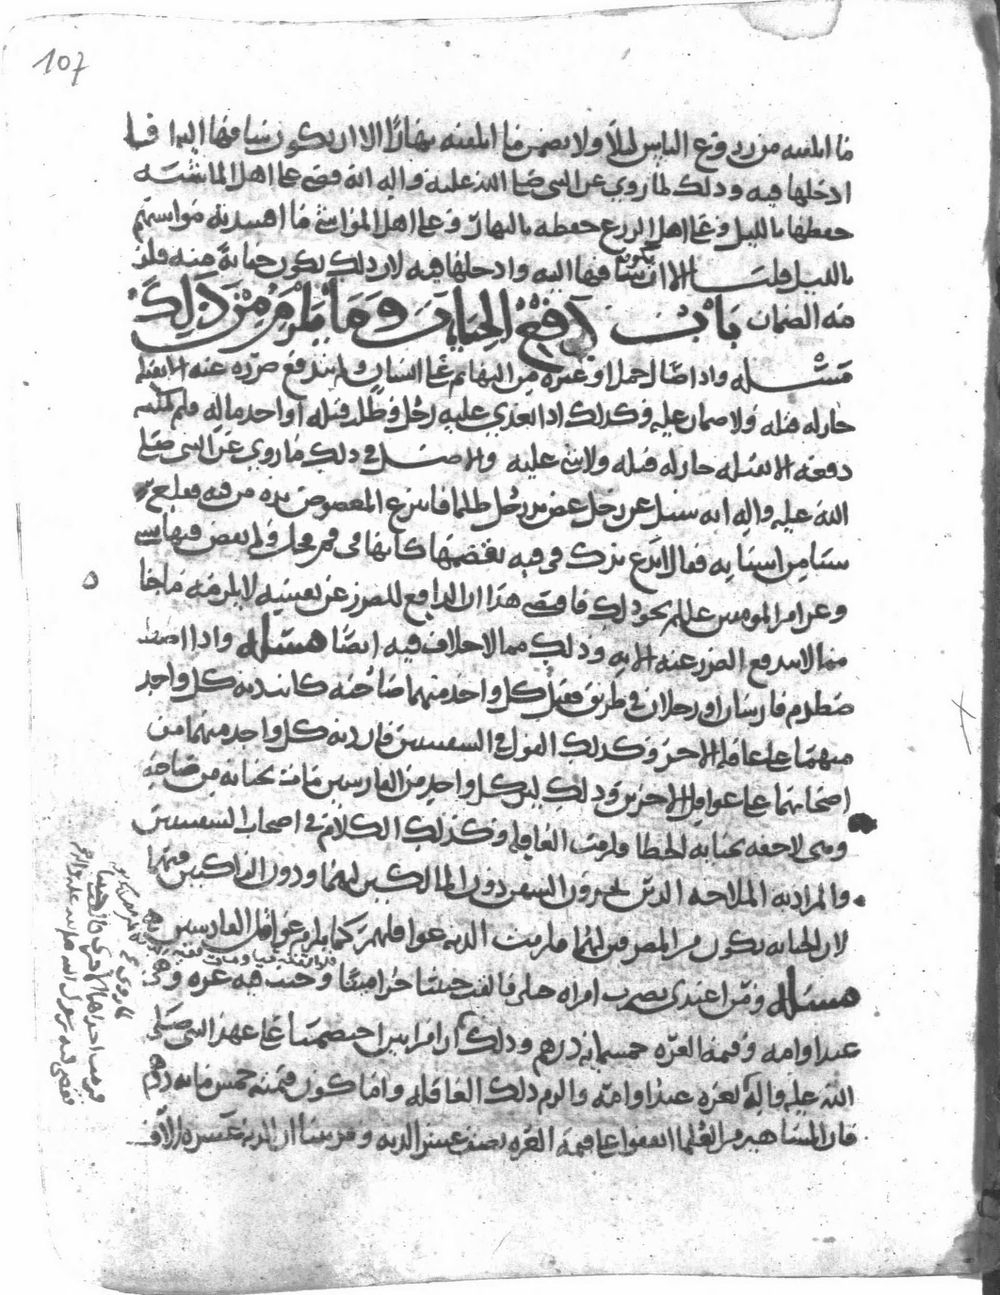 107
ما اتلفته من زروع الناس ليلا ولا يضمن ما اتلفته نهارا الا ان يكون ساقها اليه او
ادخلها فيه وذلك لما روي عن النبي صلى الله عليه واله انه قضى على اهل الماشية
حفظها بالليل وعلى اهل الزرع حفظه بالنهار وعلى اهل المواشي ما افسدته مواشيهم
بالليل قلنا الا ان يكون ساقها اليه وادخلها فيه لان ذلك يكون جناية منه فلز
مه الضمان باب دفع الجنايات وما يلزم من ذلك
مسئله واذا صال جمل او غيره من البهائم على انسان ولم يندفع ضرره عنه الا بقتله
جاز له قتله ولا ضمان عليه وكذلك اذا تعدى عليه رجل وطلب قتله او اخذ ماله ولم يمكنه
دفعه الا بقتله جاز له قتله ولا شي عليه والاصل في ذلك ما روي عن النبي صلى
الله عليه واله انه سئل عن رجل عض يد رجل ظلما فانتزع المعضوض يده من فيه فقلع
شيئا من اسنانه فقال ايدع يدك في فيه تقضمها كانها في فم فحل ولم يقض فيها بشي
وعن امير المومنين عليلم نحو ذلك فاقتضى هذا ان الدافع للضرر عن نفسه لا يلزمه ما جنا
مما لا يندفع الضرر عنه الا به وذلك مما لا خلاف فيه ايضا مسئله واذا اصط
ضطدم فارسان او رجلان في طريق فقتل كل واحد منهما صاحبه كانت دية كل واحد
منهما على عاقلة الاخر وكذلك القول في السفينتين فان دية كل واحد منهما من
اصحابهما على عواقل الاخرين وذلك لان كل واحد من الفارسين مات بجناية من صاحبه
وهي لاحقه بجناية الخطا فلزمت العاقله وكذلك الكلام في اصحاب السفينتين
والمراد به الملاحه الذين يجرون السفن دون المالكين لهما ودون الراكبين فيهما
لان الجنايه تكون من المصرفين لهما فلزمت الديه عواقلهم كما يلزم عواقل الفارسين
مسئله ومن اعتدى بضرب امراه حامل فالقت جنينا حرا ميتا وجبت فيه غره وهي
عبد او امه وقيمة الغره خمسمايه درهم وذلك ان امراتين اختصمتا على عهد النبي صلى
الله عليه واله بغره عبد او امه والزم ذلك العاقله وانما يكون قيمته خمس مايه درهم
فان المشاهير من العلما اتفقوا على قيمة الغره نصف عشر الديه وقد بينا ان الديه عشره الاف